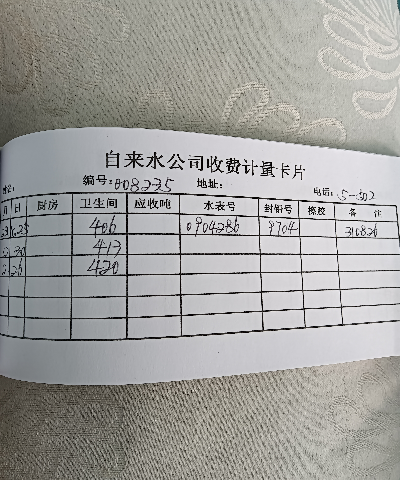 自来水公司收费计量卡片
编号:008235 地址: 电话: 5-302
月 日 厨房 卫生间 应收吨 水表号 封铅号 搀胶 备 注
25 406 0904286 9704 310826
30 413
26 420